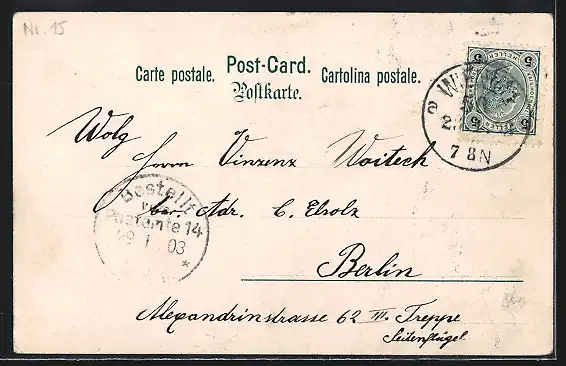 Nr. 15
Carte postale. Post-Card. Cartolina postale.
Postkarte.
5 HELLER 5
5 HELLER 5
7 8N
Wolg
Herrn Vinzenz Woitech
per. Adr. C. Elsolz
Bestellt
vom
Postamte 14
29 1 03
Berlin
Alexandrinstrasse 62 III. Treppe
Seitenflügel